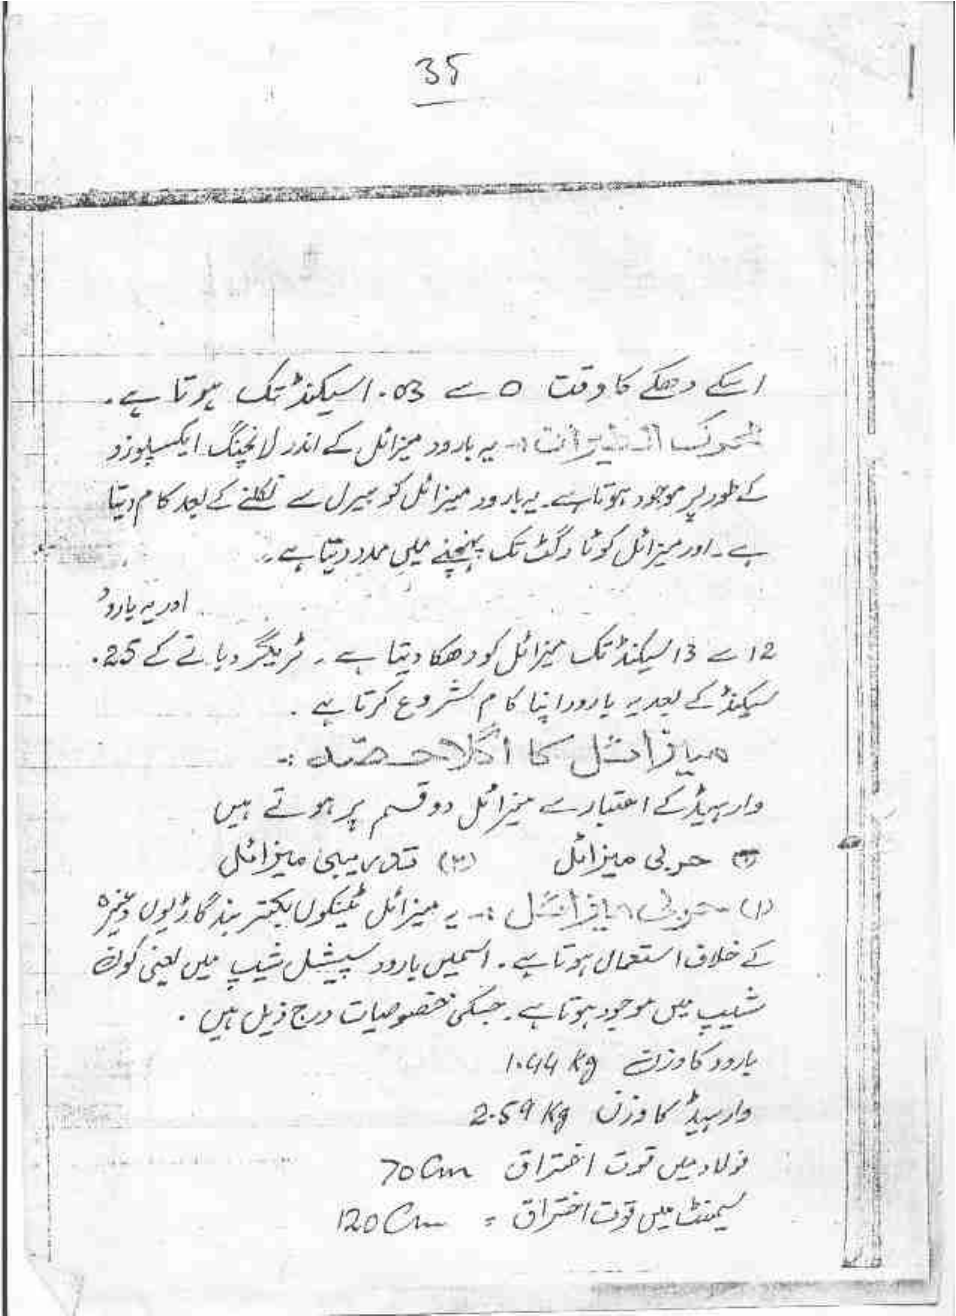 35
اسکے دھکے کا وقت 0 سے 03. اسیکنڈ تک ہوتا ہے۔
یہ بارود میزائل کے اندر لانچنگ ایکسپلوزو
کے طور پر موجود ہوتا ہے۔ یہ بارود میزائل کو بیرل سے نکلنے کے بعد کام دیتا
ہے۔ اور میزائل کو ٹارگٹ تک پہنچنے میں مدد دیتا ہے۔
اور یہ بارود
12 سے 13 سیکنڈ تک میزائل کو دھکا دیتا ہے۔ ٹریگر دبانے کے 25.
سیکنڈ کے بعد یہ بارود اپنا کام شروع کرتا ہے۔
میزائل کا اگلا حصّہ :۔
وار ہیڈ کے اعتبار سے میزائل دو قسم پر ہوتے ہیں
حربی میزائل (۲) تدریبی میزائل
(۱) حربی میزائل :۔ یہ میزائل ٹینکوں بکتر بند گاڑیوں وغیرہ
کے خلاف استعمال ہوتا ہے۔ اسمیں بارود سپیشل شیپ میں یعنی کون
شیپ میں موجود ہوتا ہے۔ جسکی خصوصیات درج ذیل ہیں۔
بارود کا وزن 1.44 kg
وار ہیڈ کا وزن 2.59 Kg
فولاد میں قوت اختراق 70 Cm
سیمنٹ میں قوت اختراق = 120 Cm